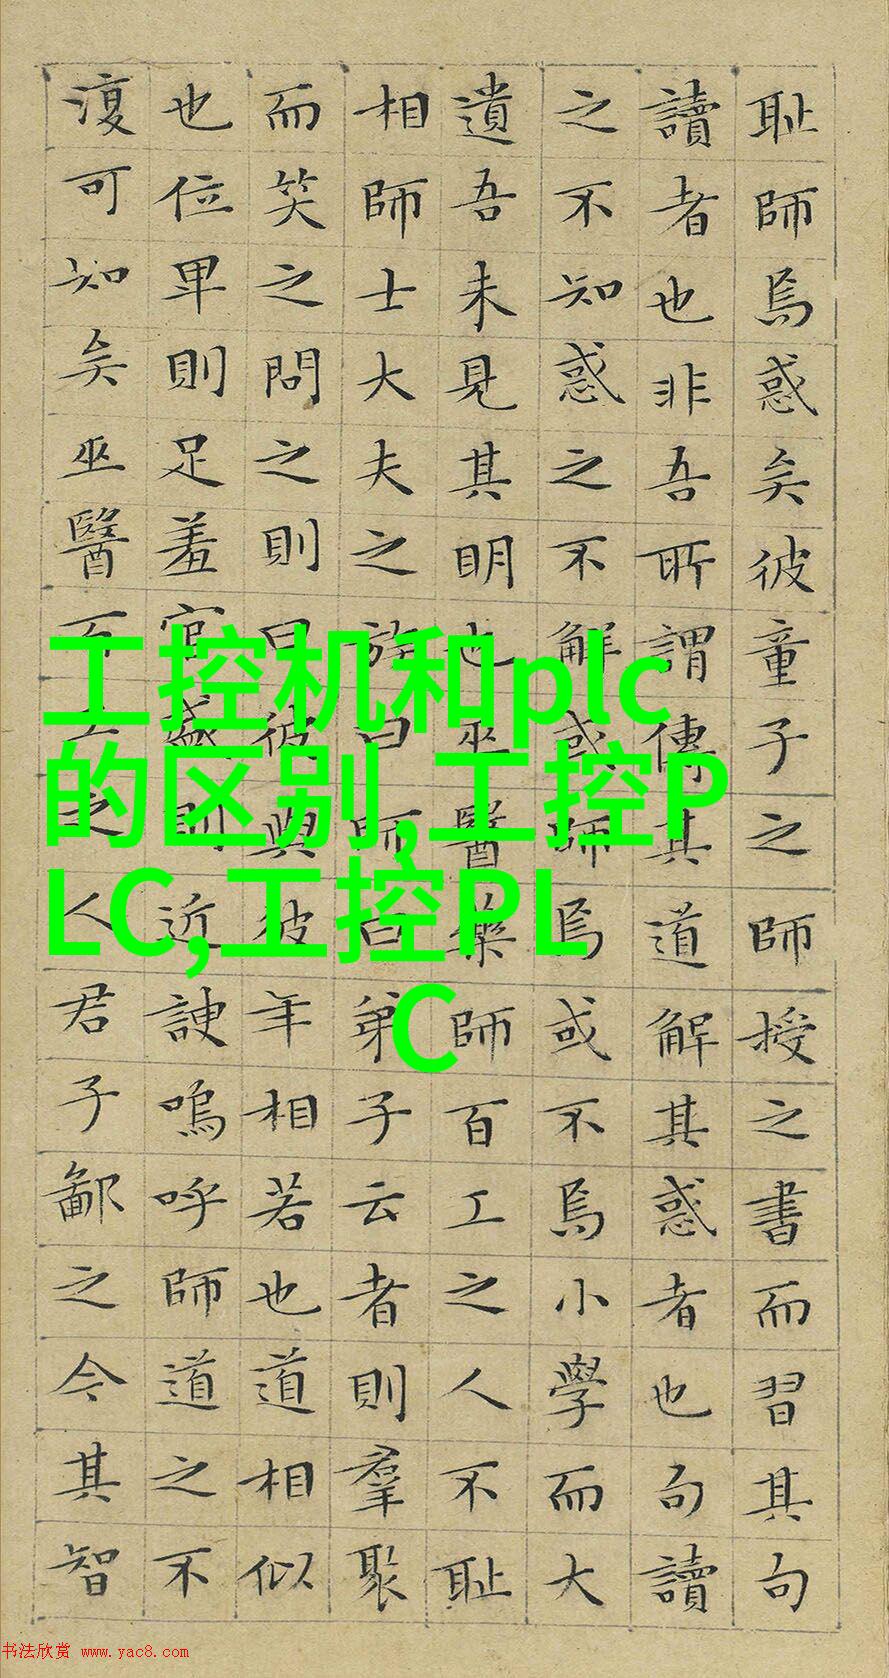 耻師焉惑矣彼童子之師授之書而習其句
讀者也非吾所謂傳其道解其惑者也句讀
之不知惑之不解或師焉或不焉小學而大
遺吾未見其明也巫醫藥師百工之人不耻
相師士大夫之族曰師曰弟子云者則羣聚
而笑之問之則曰彼與彼年相若也道相似
也位卑則足羞官盛則近諛嗚呼師道之不
復可知矣巫醫百工之人君子鄙之今其智
工控机和plc
的区别,工控P
LC,工控PL
C
书法欣赏 www.yac8.com